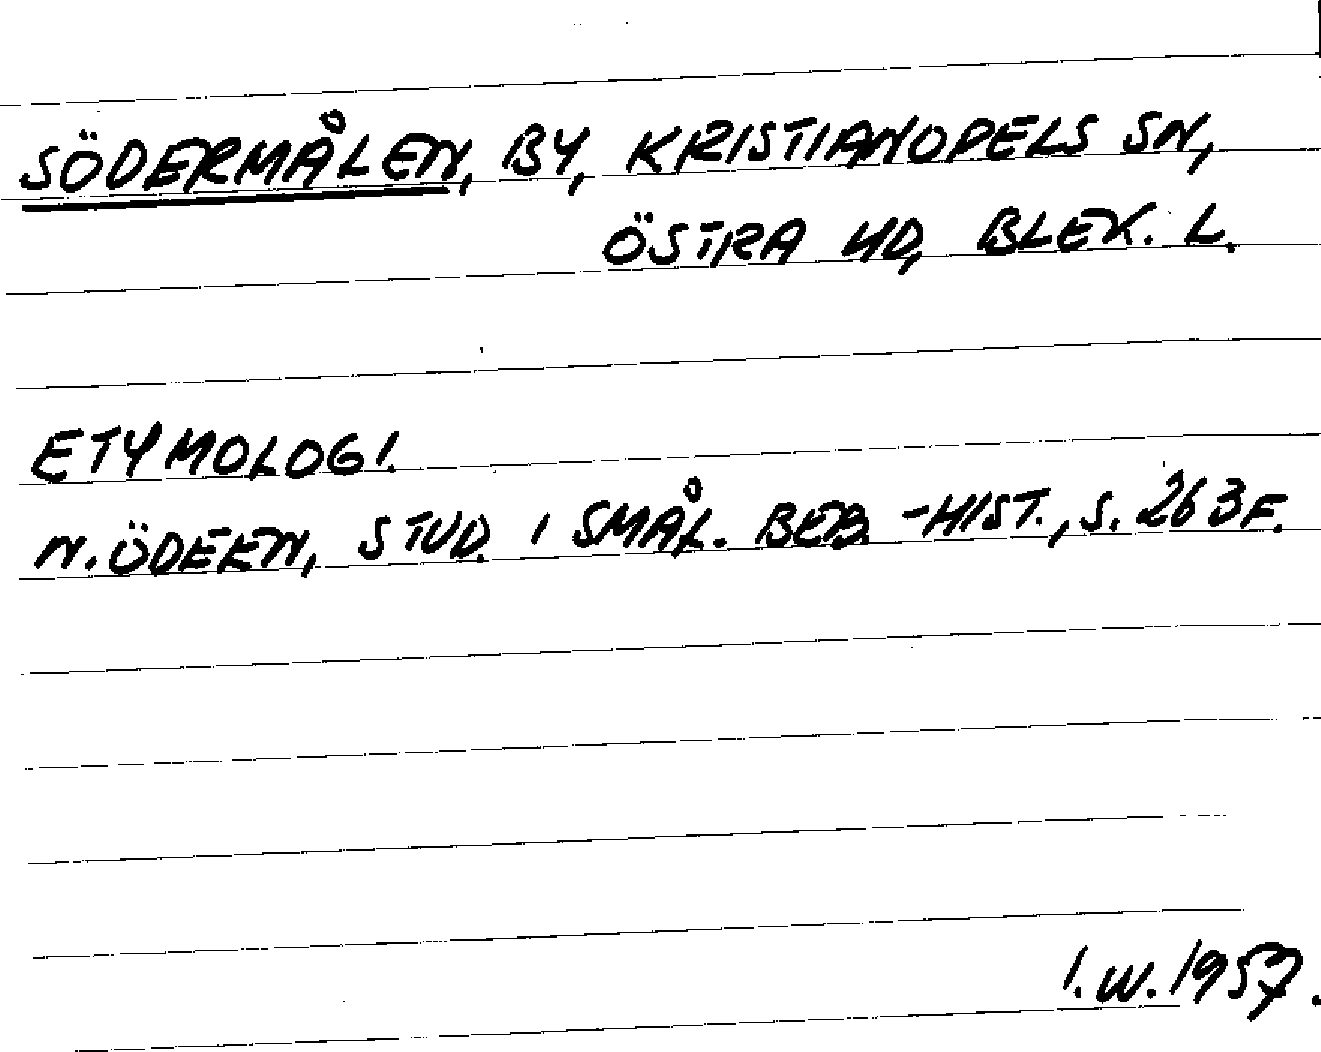 SÖDERMÅLEN, BY, KRISTIANOPELS SN,
ÖSTRA HD, BLEK. L.
ETYMOLOGI.
N. ÖDEEN, STUD. I SMÅL. BEB.-HIST., S. 263F.
I.W. 1957.